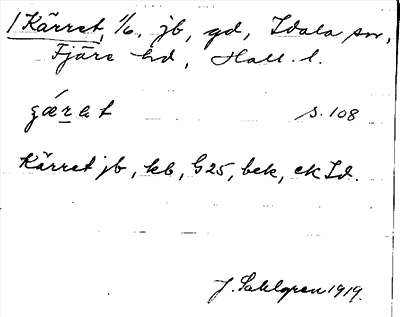 1 Kärret, 1/6, jb, gd, Idala sn,
Fjäre hd, Hall. l.
gǽret s. 108
Kärret jb, kb, G25, bek, ek Id.
J. Sahlgren 1919.